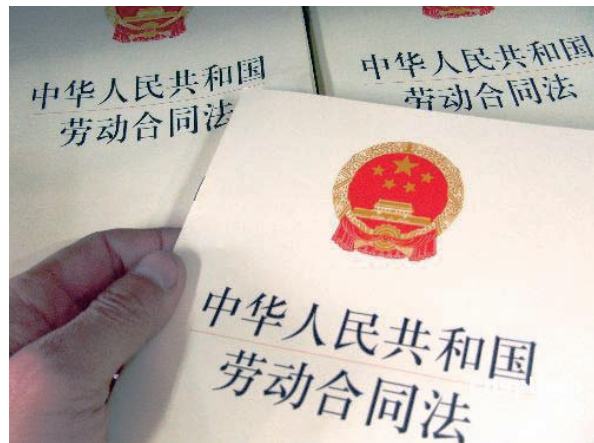 中华人民共和国
劳动合同法
中华人民共和国
劳动合同法
中华人民共和国
劳动合同法